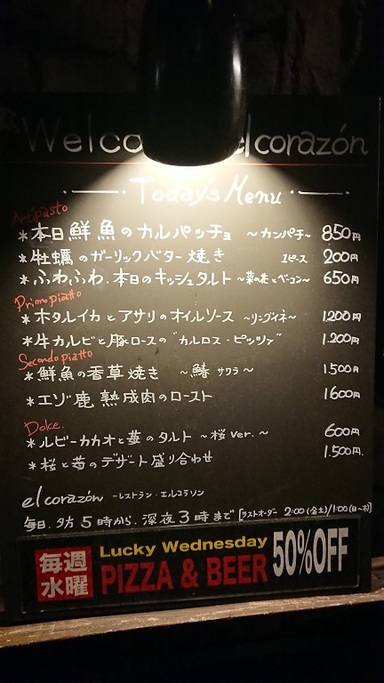 Welco elcorazón
Todays Menu
Antipasto
*本日鮮魚のカルパッチョ ～カンパチ～ 850円
*牡蠣のガーリックバター焼き 1ピース 200円
*ふわふわ.本日のキッシュタルト ～菜の花とベーコン～ 650円
Primopiatto
*ホタルイカとアサリのオイルソース ～リングイネ～ 1.200円
*牛カルビと豚ロースの"カルロス・ピッツァ" 1.200円
Secondopiatto
*鮮魚の香草焼き ～鰆 サワラ～ 1.500円
*エゾ鹿 熟成肉のロースト 1600円
Dolce.
*ルビーカカオと苺のタルト ～桜ver.～ 600円
*桜と苺のデザート盛り合わせ 1.500円.
elcorazón ーレストラン・エルコラソン
毎日.夕方5時から.深夜3時まで [ラストオーダー 2:00(金土)/1:00(日〜木)]
毎週
水曜
Lucky Wednesday
PIZZA & BEER
50%OFF